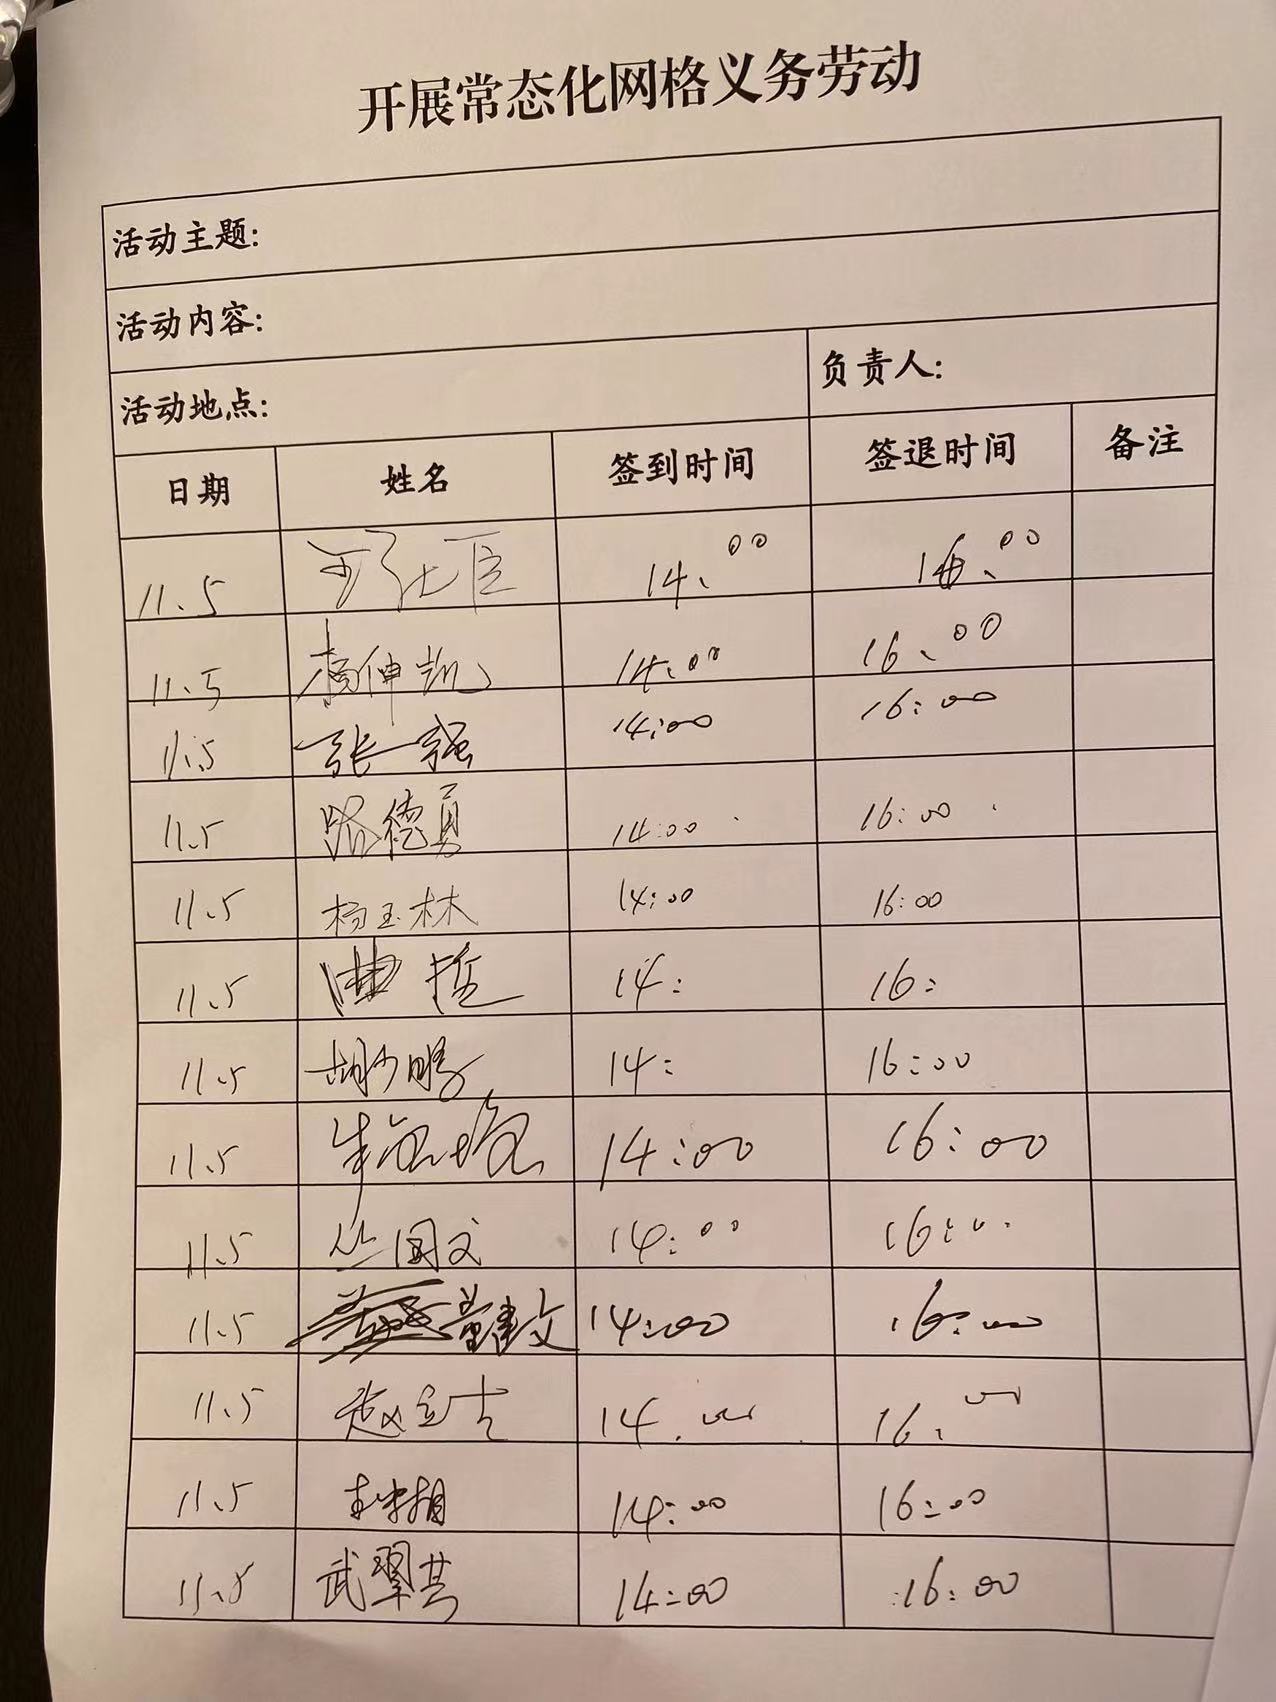 开展常态化网格义务劳动
活动主题:
活动内容:
活动地点: 负责人:
日期 姓名 签到时间 签退时间 备注
11.5 14:00 16:00
11.5 杨伸凯 14:00 16:00
11.5 张一强 14:00 16:00
11.5 路德勇 14:00 16:00
11.5 杨玉林 14:00 16:00
11.5 曲 14: 16:
11.5 胡少鹏 14: 16:00
11.5 14:00 16:00
11.5 丛国文 14:00 16:00
11.5 董建文 14:00 16:00
11.5 赵 14:00 16:00
11.5 14:00 16:00
11.5 武翠芸 14:00 16:00